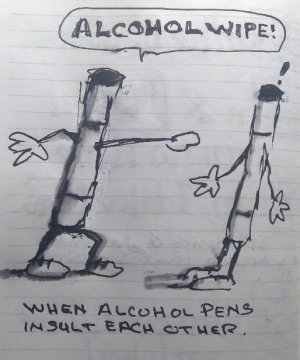 ALCOHOL WIPE!
!
WHEN ALCOHOL PENS
INSULT EACH OTHER.